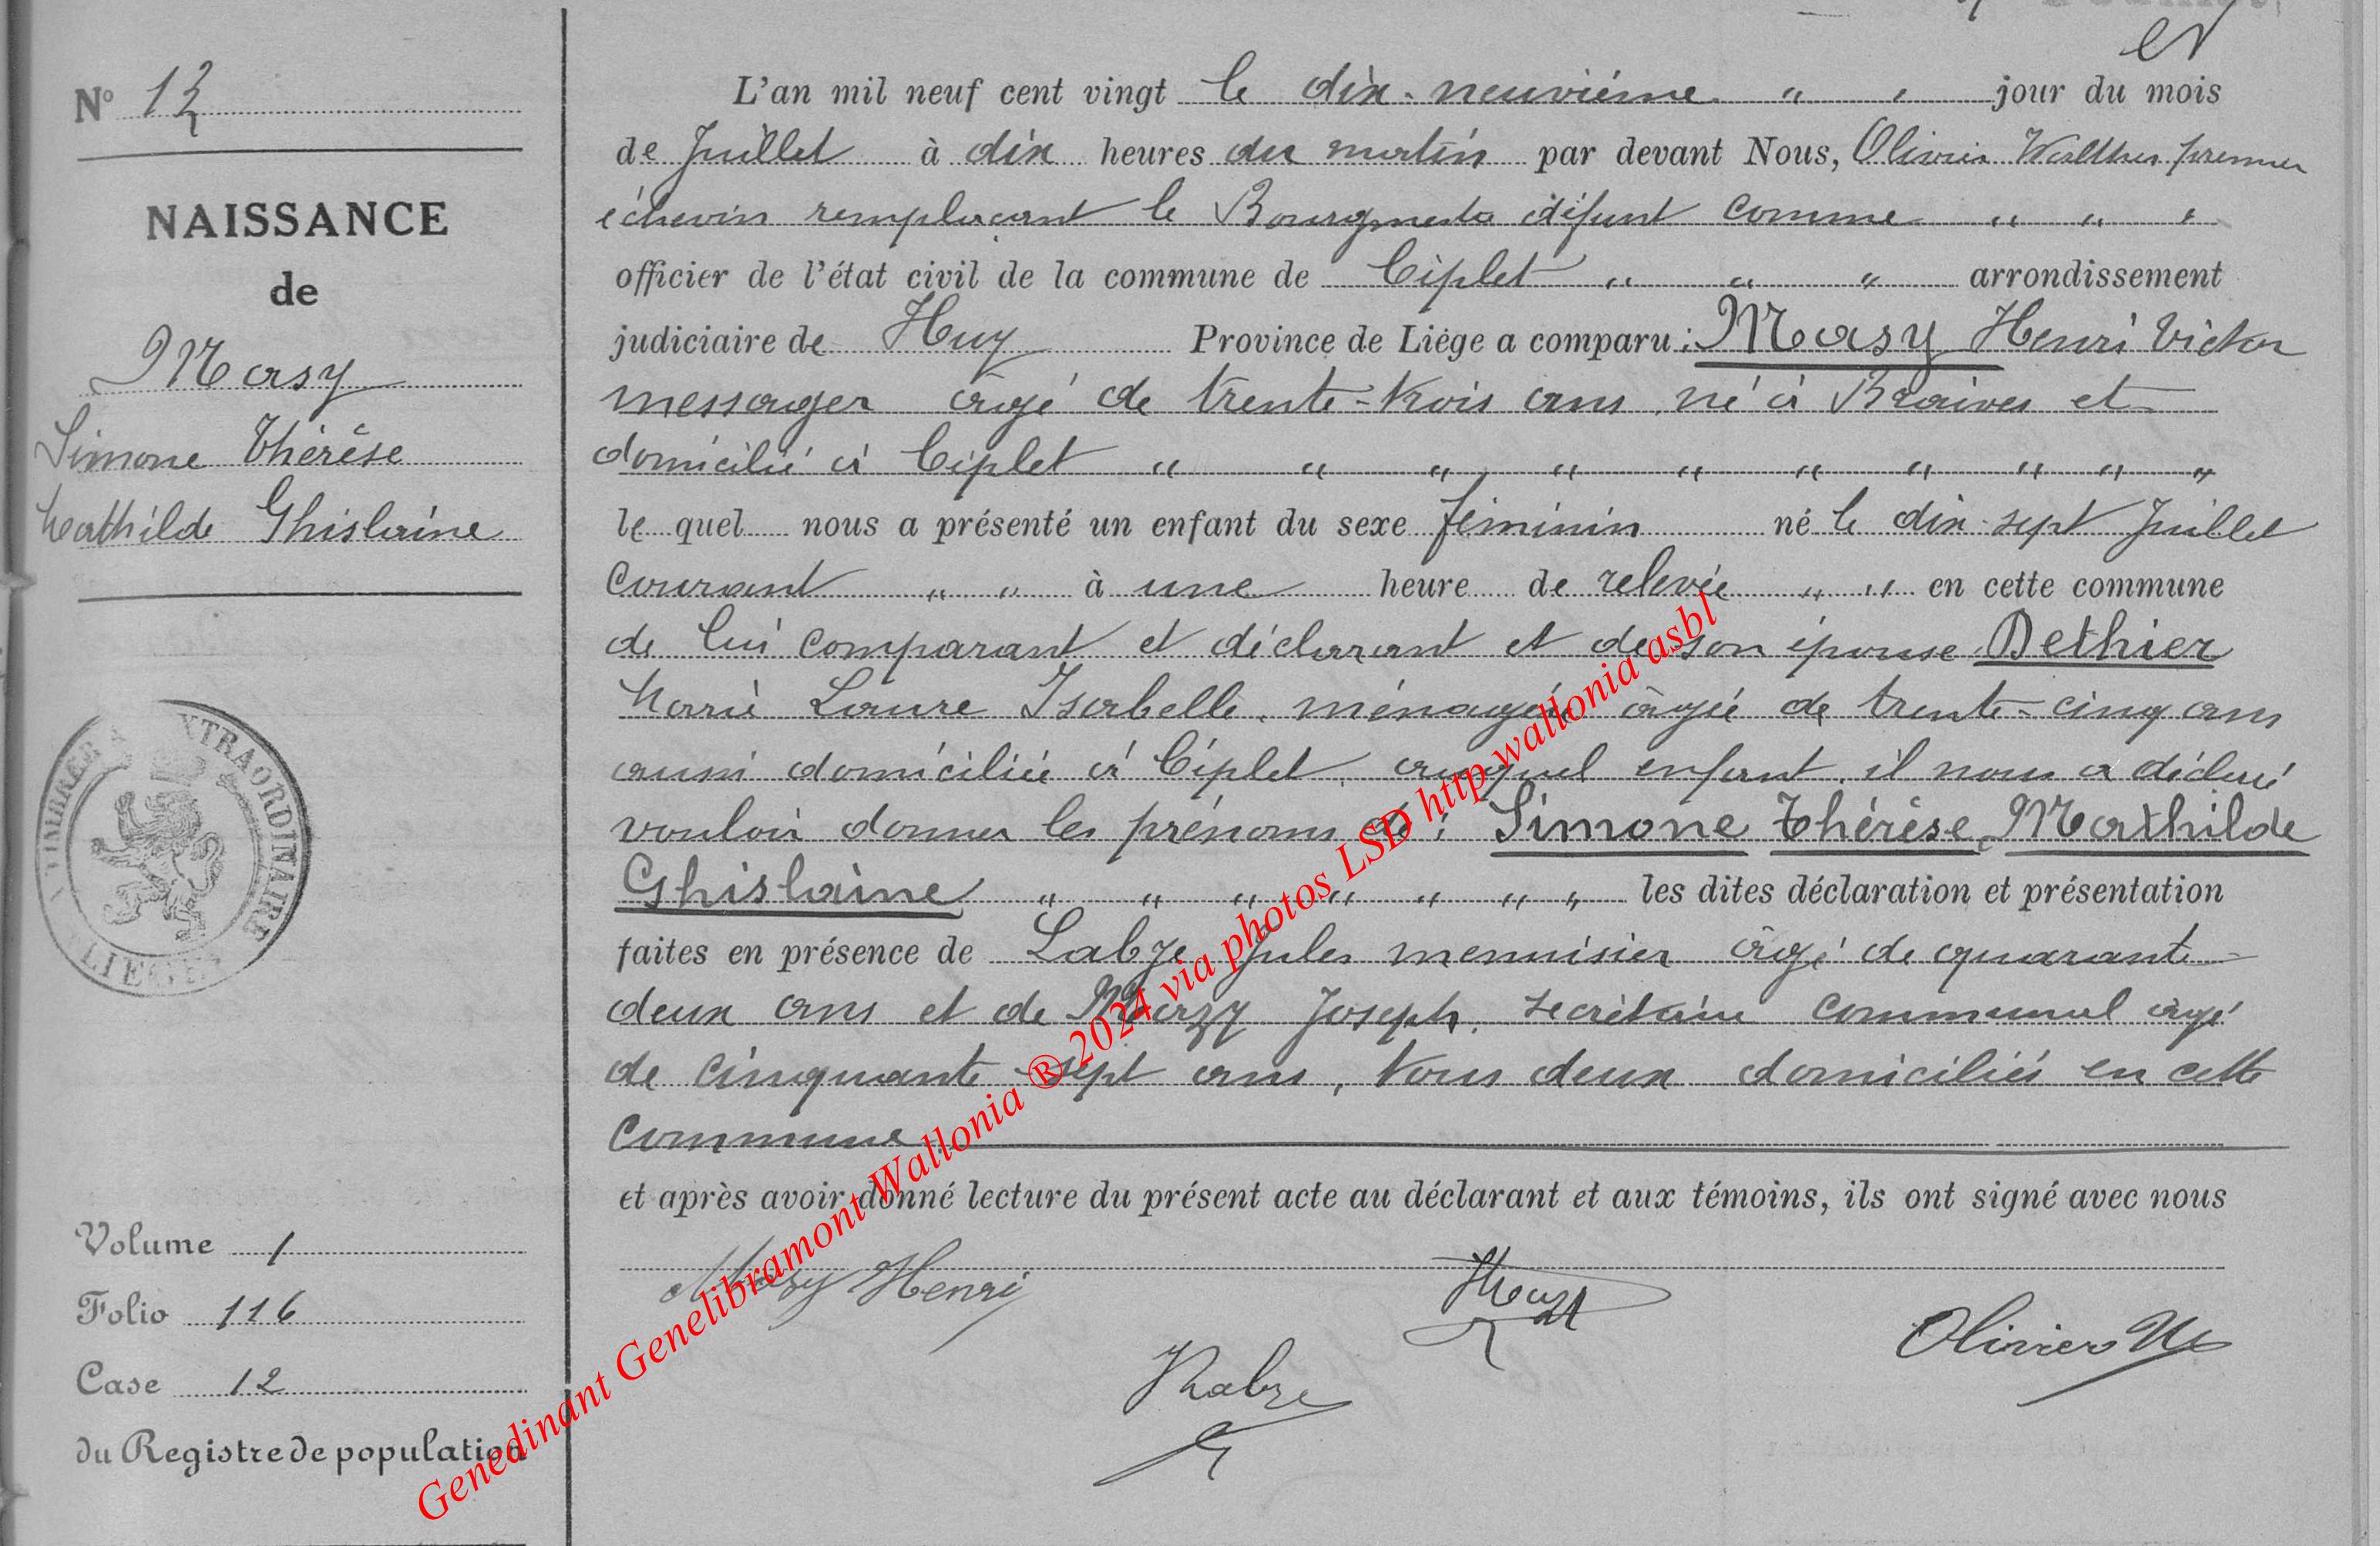 N° 12
NAISSANCE
de
Masy
Simone Thérèse
Mathilde Ghislaine
TIMBRE EXTRAORDINAIRE
LIEGE
Volume 1
Folio 116
Case 12
du Registre de population
L'an mil neuf cent vingt le dix-neuvième " " jour du mois
de Juillet à dix heures du matin par devant Nous, Olivier Walther premier
échevin remplaçant le Bourgmestre défunt comme " " "
officier de l'état civil de la commune de Ciplet " " " arrondissement
judiciaire de Huy Province de Liége a comparu : Masy Henri Victor
messager âgé de trente-trois ans, né à Braives et
domicilié à Ciplet " " " " " " " " " "
le quel nous a présenté un enfant du sexe féminin né le dix-sept Juillet
courant " " à une heure de relevée " " en cette commune
de lui comparant et déclarant et de son épouse Dethier
Marie Laure Isabelle, ménagère âgée de trente-cinq ans
aussi domiciliée à Ciplet, auquel enfant il nous a déclaré
vouloir donner les prénoms de : Simone Thérèse Mathilde
Ghislaine " " " " " " " les dites déclaration et présentation
faites en présence de Labze Jules menuisier âgé de quarante-
deux ans et de Mazy Joseph, secrétaire communal âgé
de cinquante-sept ans, tous deux domiciliés en cette
commune
et après avoir donné lecture du présent acte au déclarant et aux témoins, ils ont signé avec nous
Masy Henri
Olivier W
Genedinant Genelibramont Wallonia ® 2024 via photos LSD http wallonia asbl